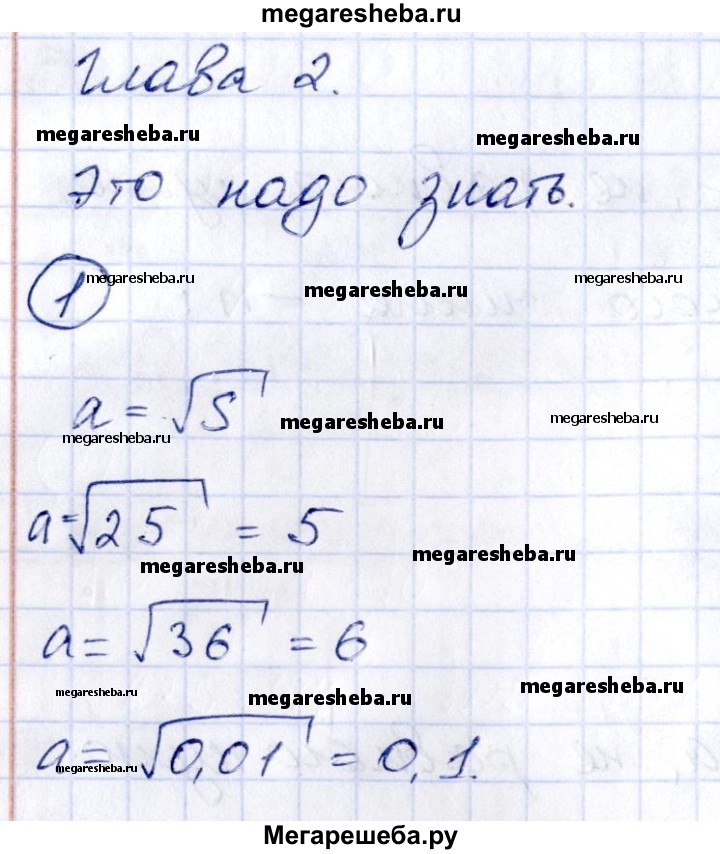 megaresheba.ru
Глава 2.
megaresheba.ru megaresheba.ru
Это надо знать.
1 megaresheba.ru megaresheba.ru megaresheba.ru
a = √S megaresheba.ru megaresheba.ru
megaresheba.ru
a = √25 = 5
megaresheba.ru megaresheba.ru
a = √36 = 6
megaresheba.ru megaresheba.ru megaresheba.ru
a = √0,01 = 0,1.
megaresheba.ru
Мегарешеба.ру